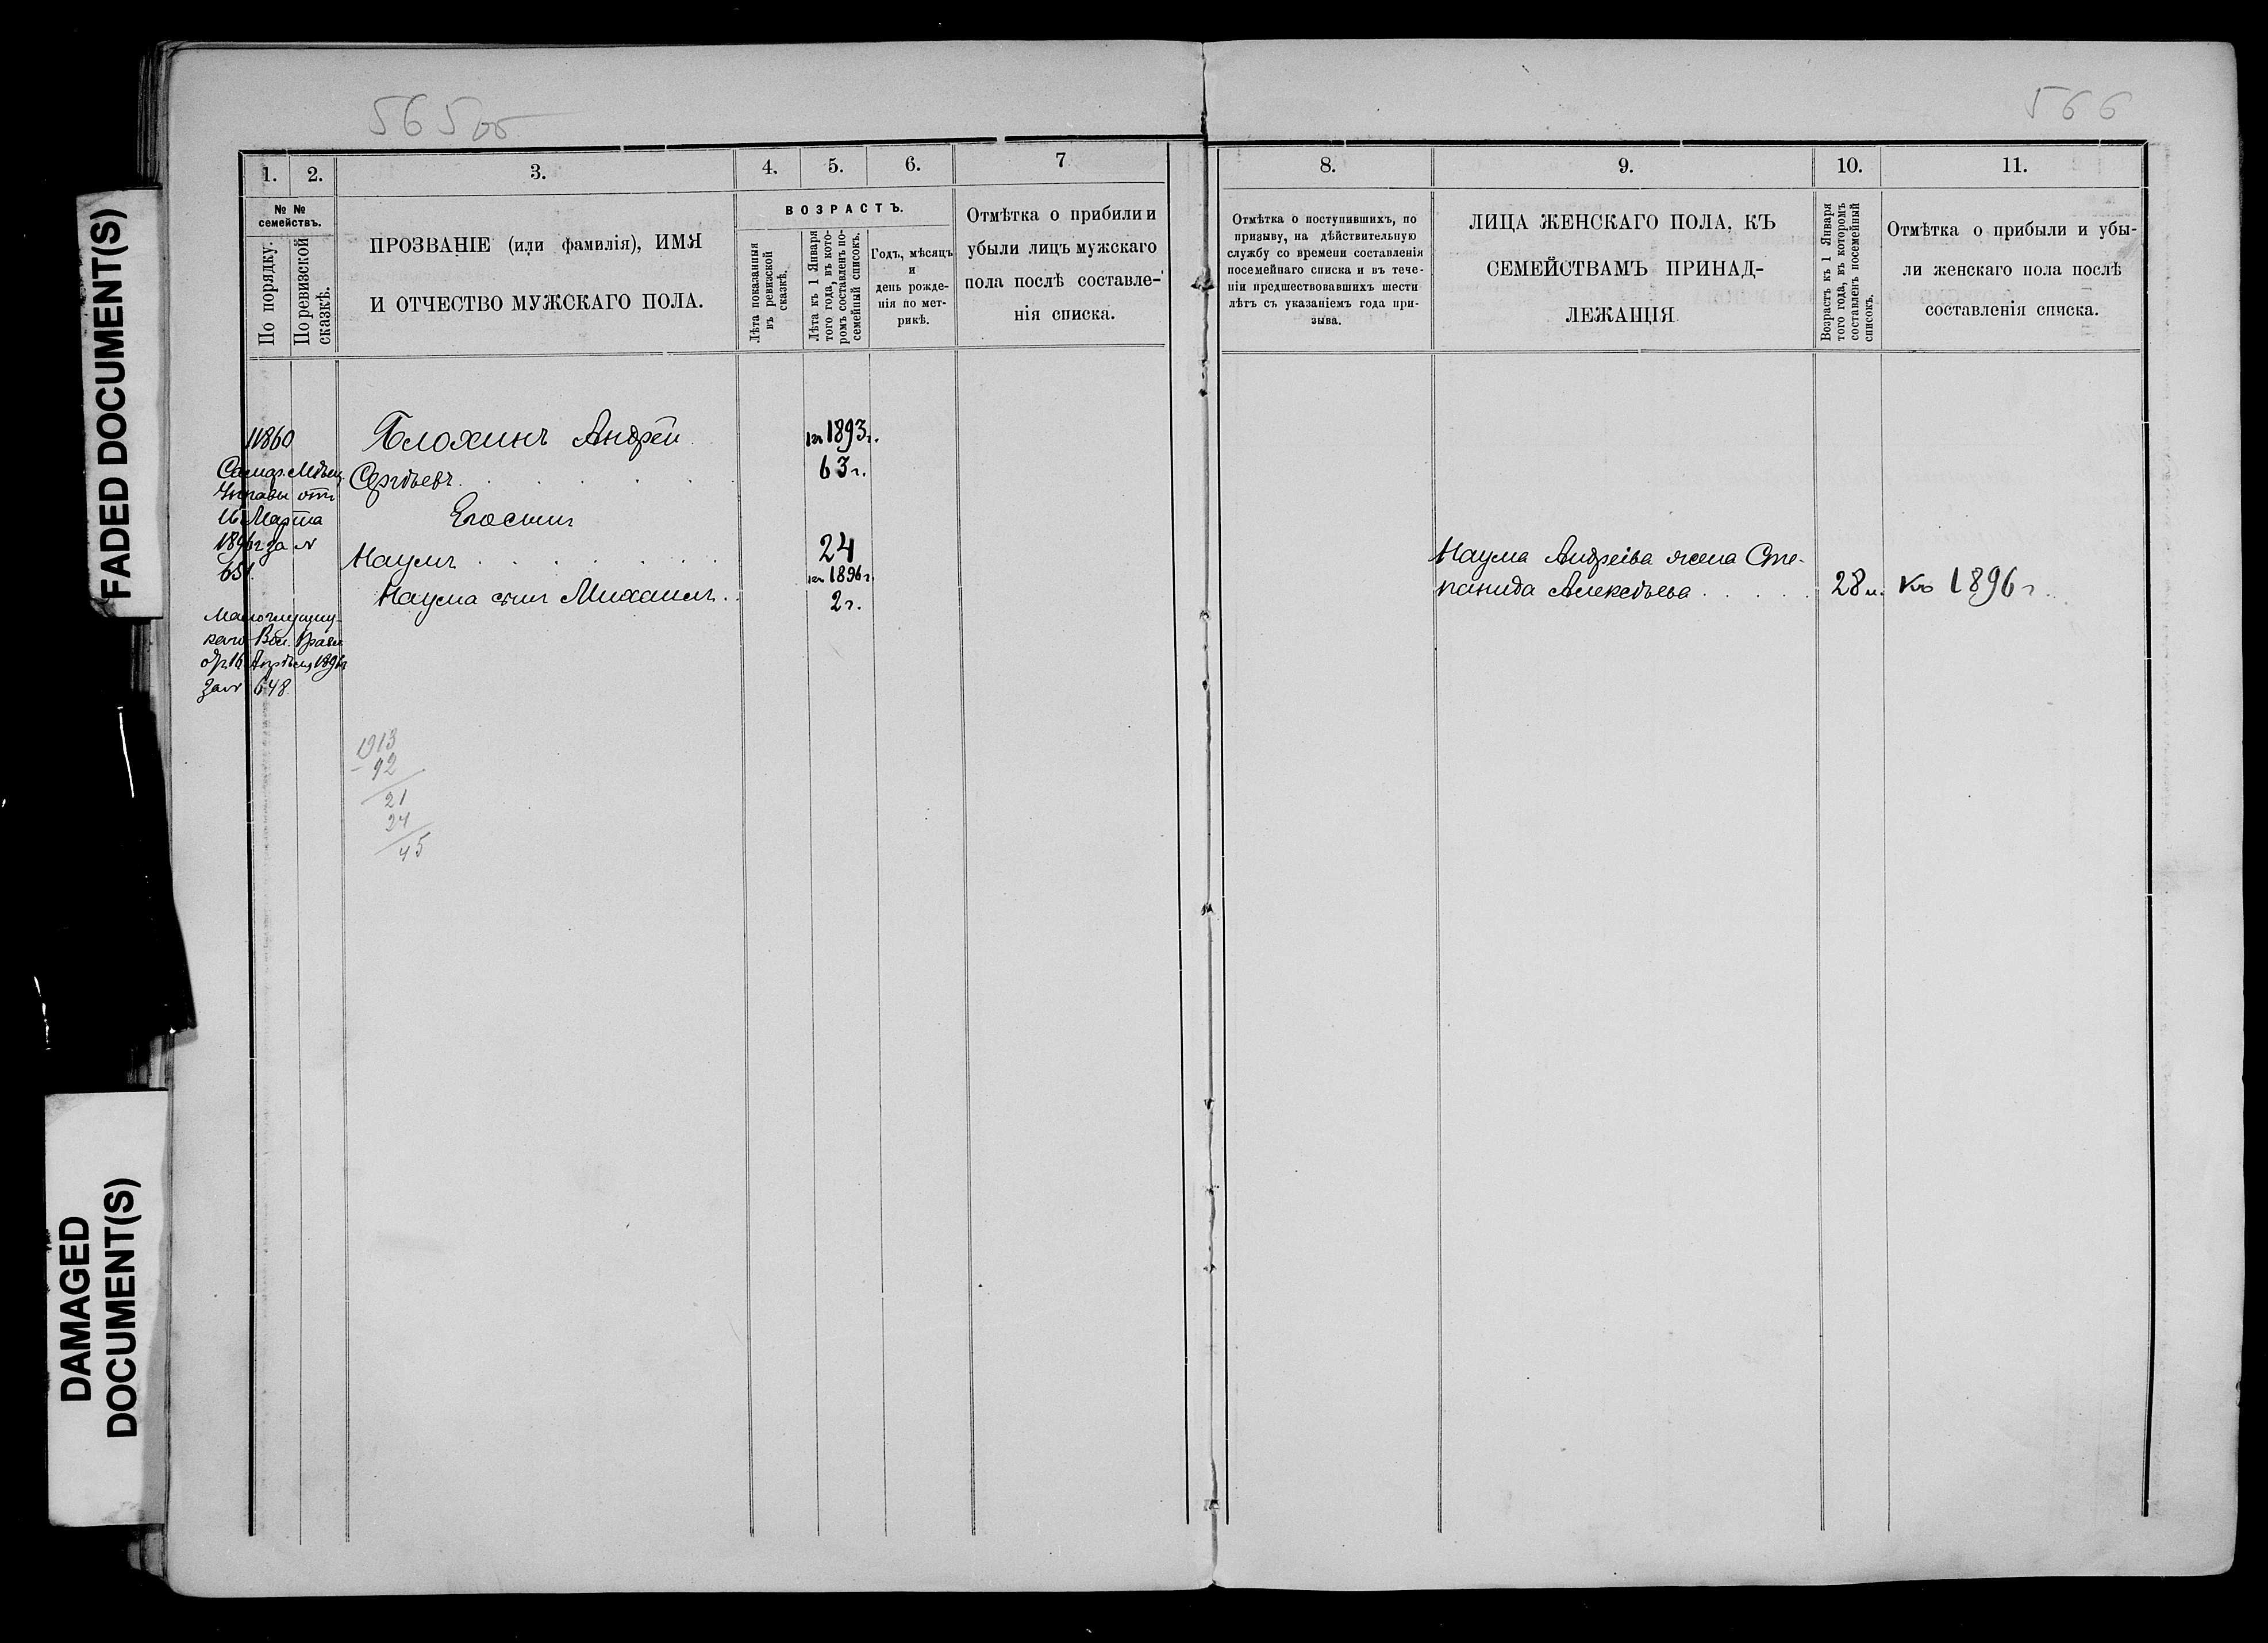 FADED DOCUMENT(S)
DAMAGED
DOCUMENT(S)
565 об
1.
2.
3.
4.
5.
6.
7
№ №
семействъ.
По порядку.
По ревизской
сказкѣ.
ПРОЗВАНІЕ (или фамилія), ИМЯ
И ОТЧЕСТВО МУЖСКАГО ПОЛА.
ВОЗРАСТЪ.
Лѣта показанныя
въ ревизской
сказкѣ.
Лѣта къ 1 Января
того года, въ кото-
ромъ составленъ по-
семейный списокъ.
Годъ, мѣсяцъ
и
день рожде-
нія по мет-
рикѣ.
Отмѣтка о прибыли и
убыли лицъ мужскаго
пола послѣ составле-
нія списка.
11860
Самар. Мѣщ.
Управы отъ
16 Марта
1896 г за №
651.
от 16 Апрѣля 1896 г
за № 648.
Блохинъ Андрей
Сергѣевъ
Его сынъ
Наумъ
Наума сынъ Михаилъ
къ 1893 г.
63 г.
24
къ 1896 г.
2 г.
1913
- 92
21
24
45
566
8.
9.
10.
11.
Отмѣтка о поступившихъ, по
призыву, на дѣйствительную
службу со времени составленія
посемейнаго списка и въ тече-
ніи предшествовавшихъ шести
лѣтъ съ указаніемъ года при-
зыва.
ЛИЦА ЖЕНСКАГО ПОЛА, КЪ
СЕМЕЙСТВАМЪ ПРИНАД-
ЛЕЖАЩІЯ
Возрастъ къ 1 Января
того года, въ которомъ
составленъ посемейный
списокъ.
Отмѣтка о прибыли и убы-
ли женскаго пола послѣ
составленія списка.
Наума Андреева жена Сте-
панида Алексѣева
28 л.
Къ 1896 г.